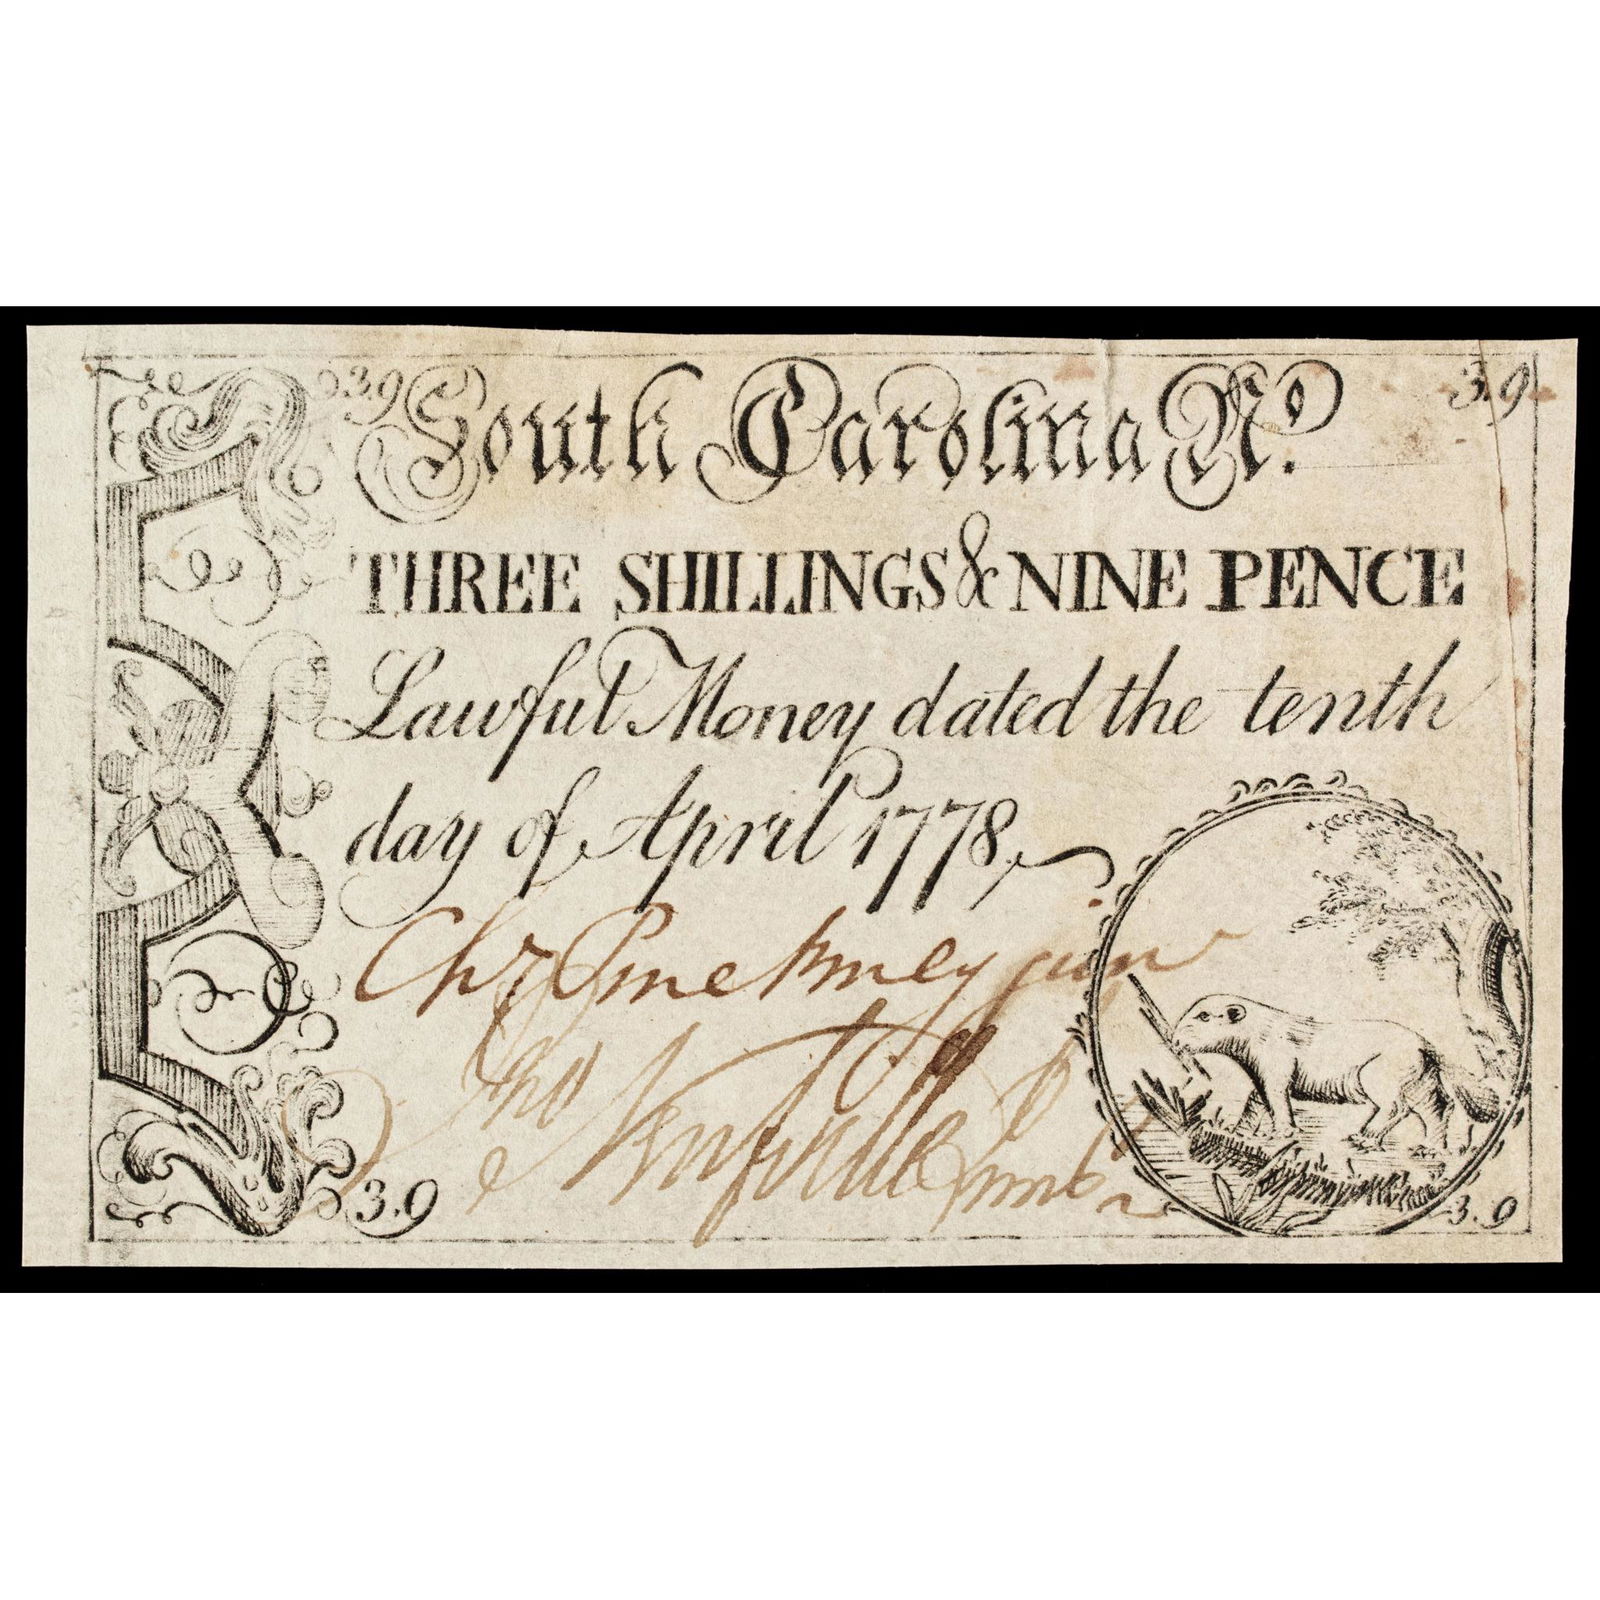 3.9 South Carolina No. 3.9
THREE SHILLINGS & NINE PENCE
Lawful Money dated the tenth
day of April 1778,
Chs Pinckney junr
3.9
3.9